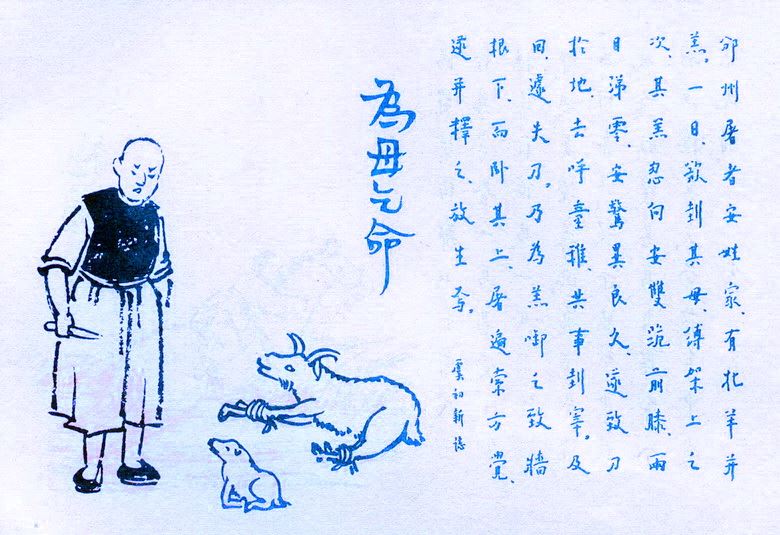 邠州屠者安姓家、有牝羊并
羔。一日、欲刲其母、縛架上之
次、其羔忽向安雙跪前膝、兩
目涕零、安驚異良久、遂致刀
於地、去呼童稚、共事刲宰。及
回、遽失刀。乃為羔啣之致牆
根下、而卧其上、屠遍索方覺、
遂并釋之、放生焉。
虞初新誌
為母乞命